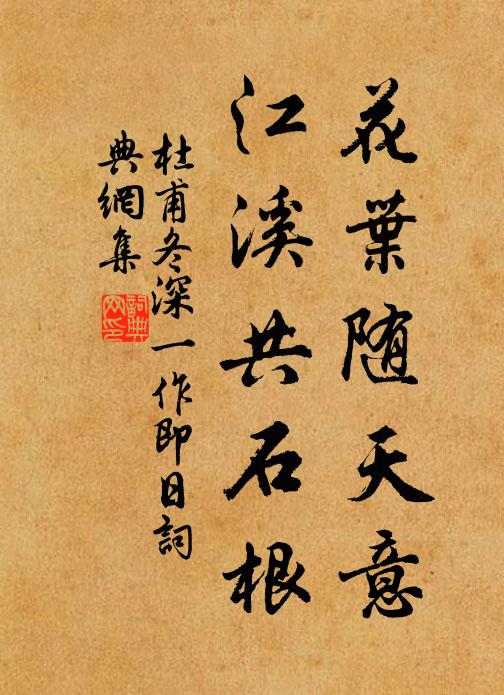 花葉随天意
江溪共石根
杜甫冬深一作即日詞
典網集
詞典網印